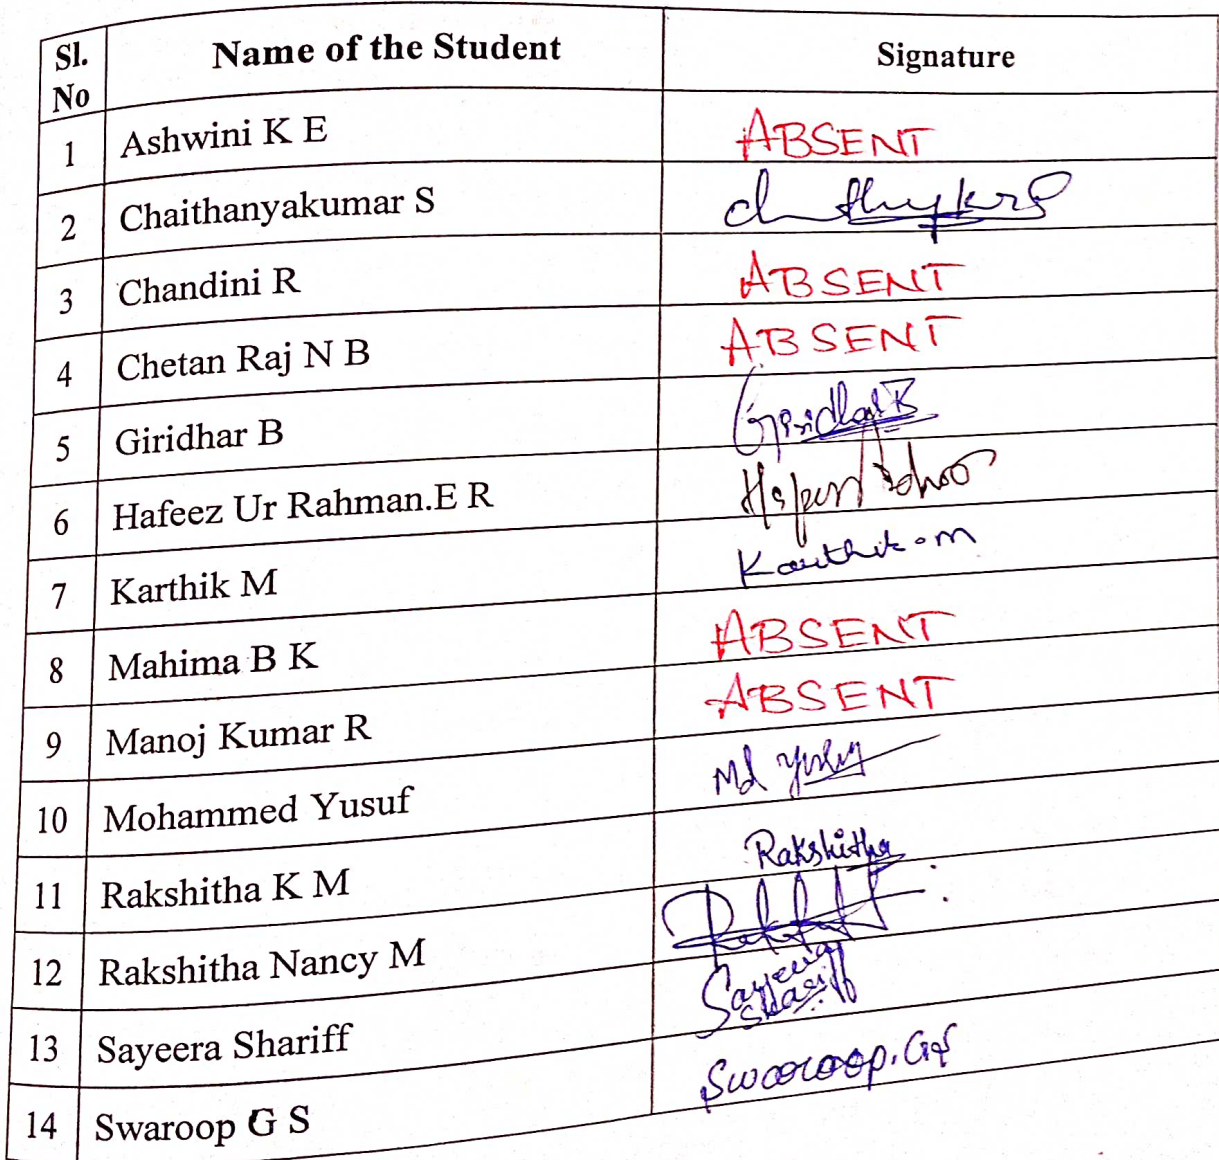 Sl. No Name of the Student Signature
1 Ashwini K E ABSENT
2 Chaithanyakumar S
3 Chandini R ABSENT
4 Chetan Raj N B ABSENT
5 Giridhar B Giridhar B
6 Hafeez Ur Rahman.E R
7 Karthik M Karthik.m
8 Mahima B K ABSENT
9 Manoj Kumar R ABSENT
10 Mohammed Yusuf Md Yusuf
11 Rakshitha K M Rakshitha
12 Rakshitha Nancy M
13 Sayeera Shariff Sayeera Shariff
14 Swaroop G S Swaroop.GS